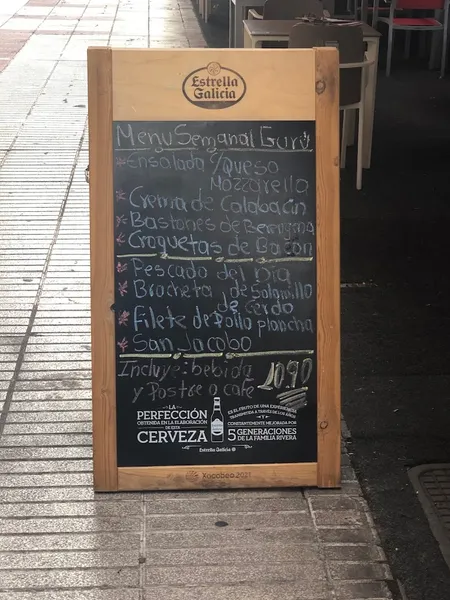 Estrella
Galicia
Menu Semanal Gurú
*Ensalada c/Queso
Mozzarella
*Crema de Calabacin
*Bastones de Berengena
*Croquetas de Bacon
*Pescado del Dia
*Brocheta de Solomillo
de Cerdo
*Filete de Pollo plancha
*San Jacobo
Incluye: bebida 10,90
y Postre o cafe
LA
PERFECCIÓN
OBTENIDA EN LA ELABORACIÓN
DE ESTA
CERVEZA
ES EL FRUTO DE UNA EXPERIENCIA
TRANSMITIDA A TRAVÉS DE LOS AÑOS
Y
CONSTANTEMENTE MEJORADA POR
5 GENERACIONES
DE LA FAMILIA RIVERA
Estrella Galicia
Xacobeo 2021